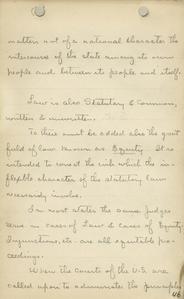 matters not of a national character the
intercourse of the state among its own
people and between its people and itself.
Law is also Statutory & Common,
written & unwritten.
To these must be added also the great
field of law known as Equity. It is
intended to correct the evils which the in-
flexible character of the statutory law
necessarily involves.
In most states the same Judges
serve in cases of Law & cases of Equity
Injunctions, etc. are all equitable pro-
ceedings.
When the Courts of the U.S. are
called upon to administer the principles